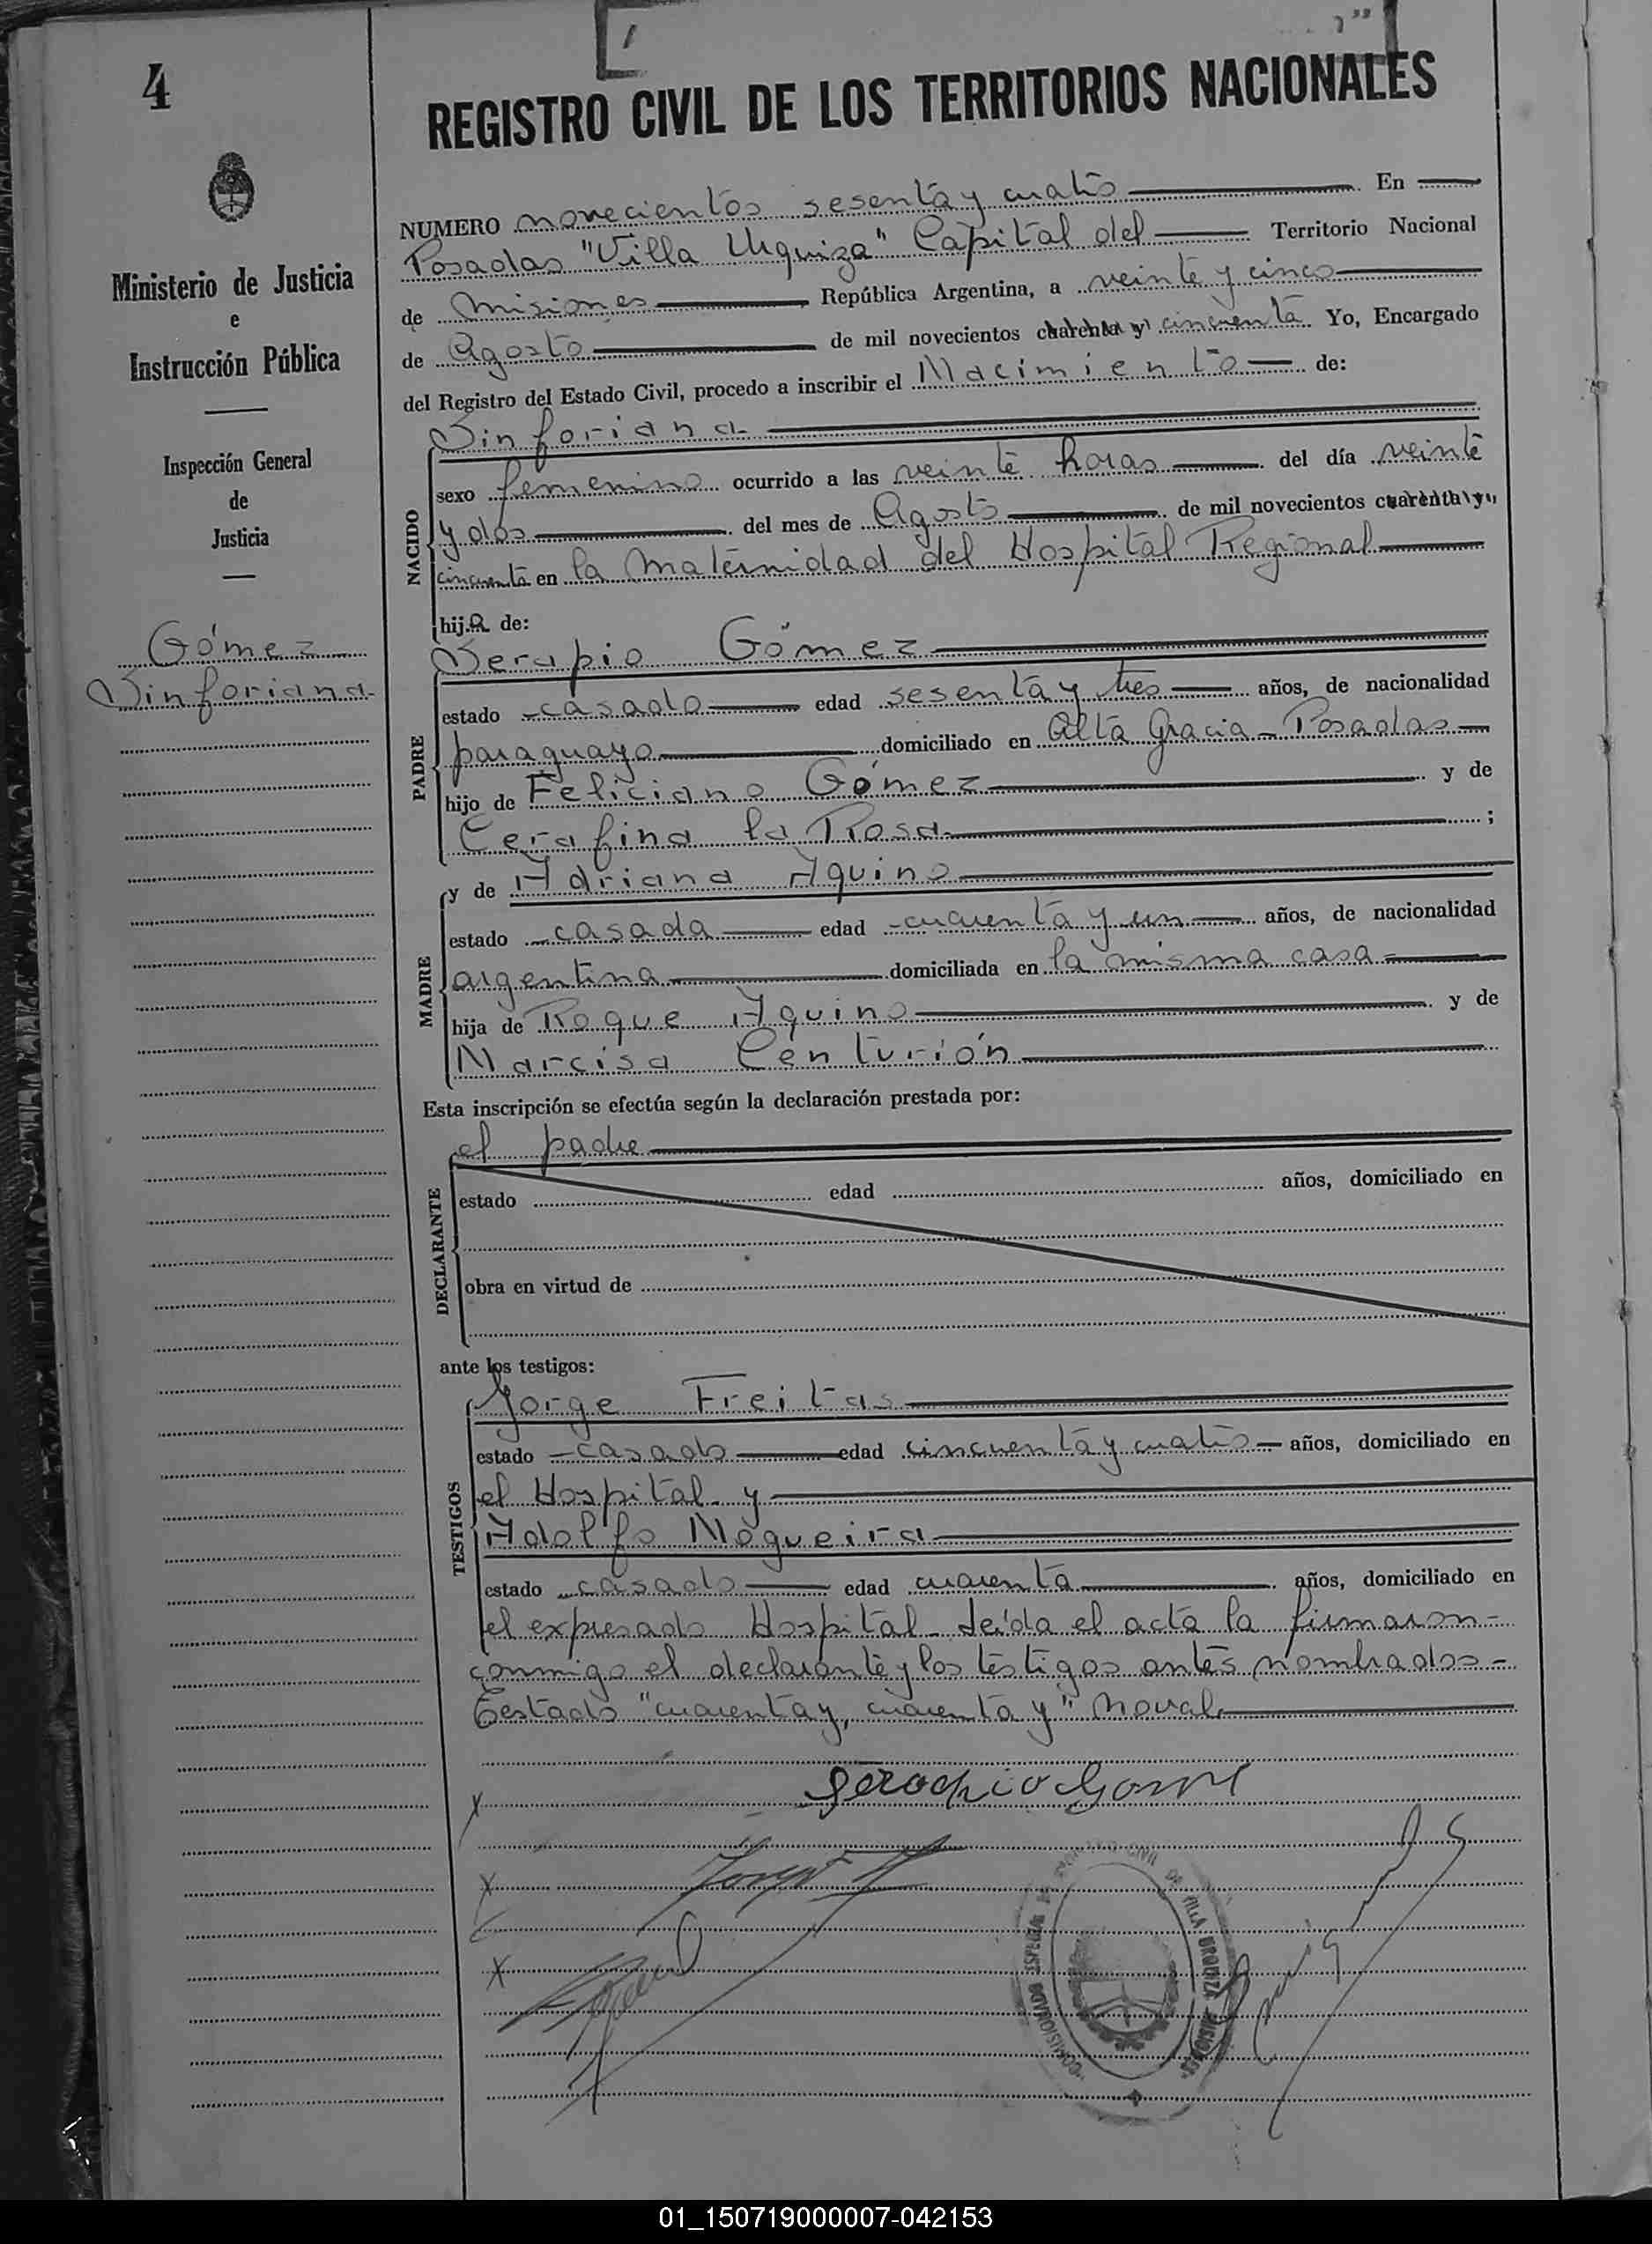 4
REGISTRO CIVIL DE LOS TERRITORIOS NACIONALES
Ministerio de Justicia
e
Instrucción Pública
Inspección General
de
Justicia
Gómez
Sinforiana
NUMERO novecientos sesenta y cuatro En
Posadas "Villa Urquiza" Capital del Territorio Nacional
de Misiones República Argentina, a veinte y cinco
de Agosto de mil novecientos cuarenta y cincuenta Yo, Encargado
del Registro del Estado Civil, procedo a inscribir el Nacimiento de:
NACIDO
Sinforiana
sexo femenino ocurrido a las veinte horas del día veinte
y dos del mes de Agosto de mil novecientos cuarenta y
cincuenta en la Maternidad del Hospital Regional
hija de:
PADRE
Serapio Gómez
estado casado edad sesenta y tres años, de nacionalidad
paraguayo domiciliado en Alta Gracia - Posadas
hijo de Feliciano Gómez y de
Cerafina la Rosa ;
MADRE
y de Adriana Aquino
estado casada edad cuarenta y un años, de nacionalidad
argentina domiciliada en la misma casa
hija de Roque Aquino y de
Narcisa Centurión
Esta inscripción se efectúa según la declaración prestada por:
DECLARANTE
el padre
estado edad años, domiciliado en
obra en virtud de
ante los testigos:
TESTIGOS
Jorge Freitas
estado casado edad cincuenta y cuatro años, domiciliado en
el Hospital y
Adolfo Nogueira
estado casado edad cuarenta años, domiciliado en
el expresado Hospital. Leída el acta la firmaron
conmigo el declarante y los testigos antes nombrados -
Testado "cuarenta y, cuarenta y" no val.
x
x
x
REGISTRO CIVIL DE VILLA URQUIZA MISIONES
01_150719000007-042153